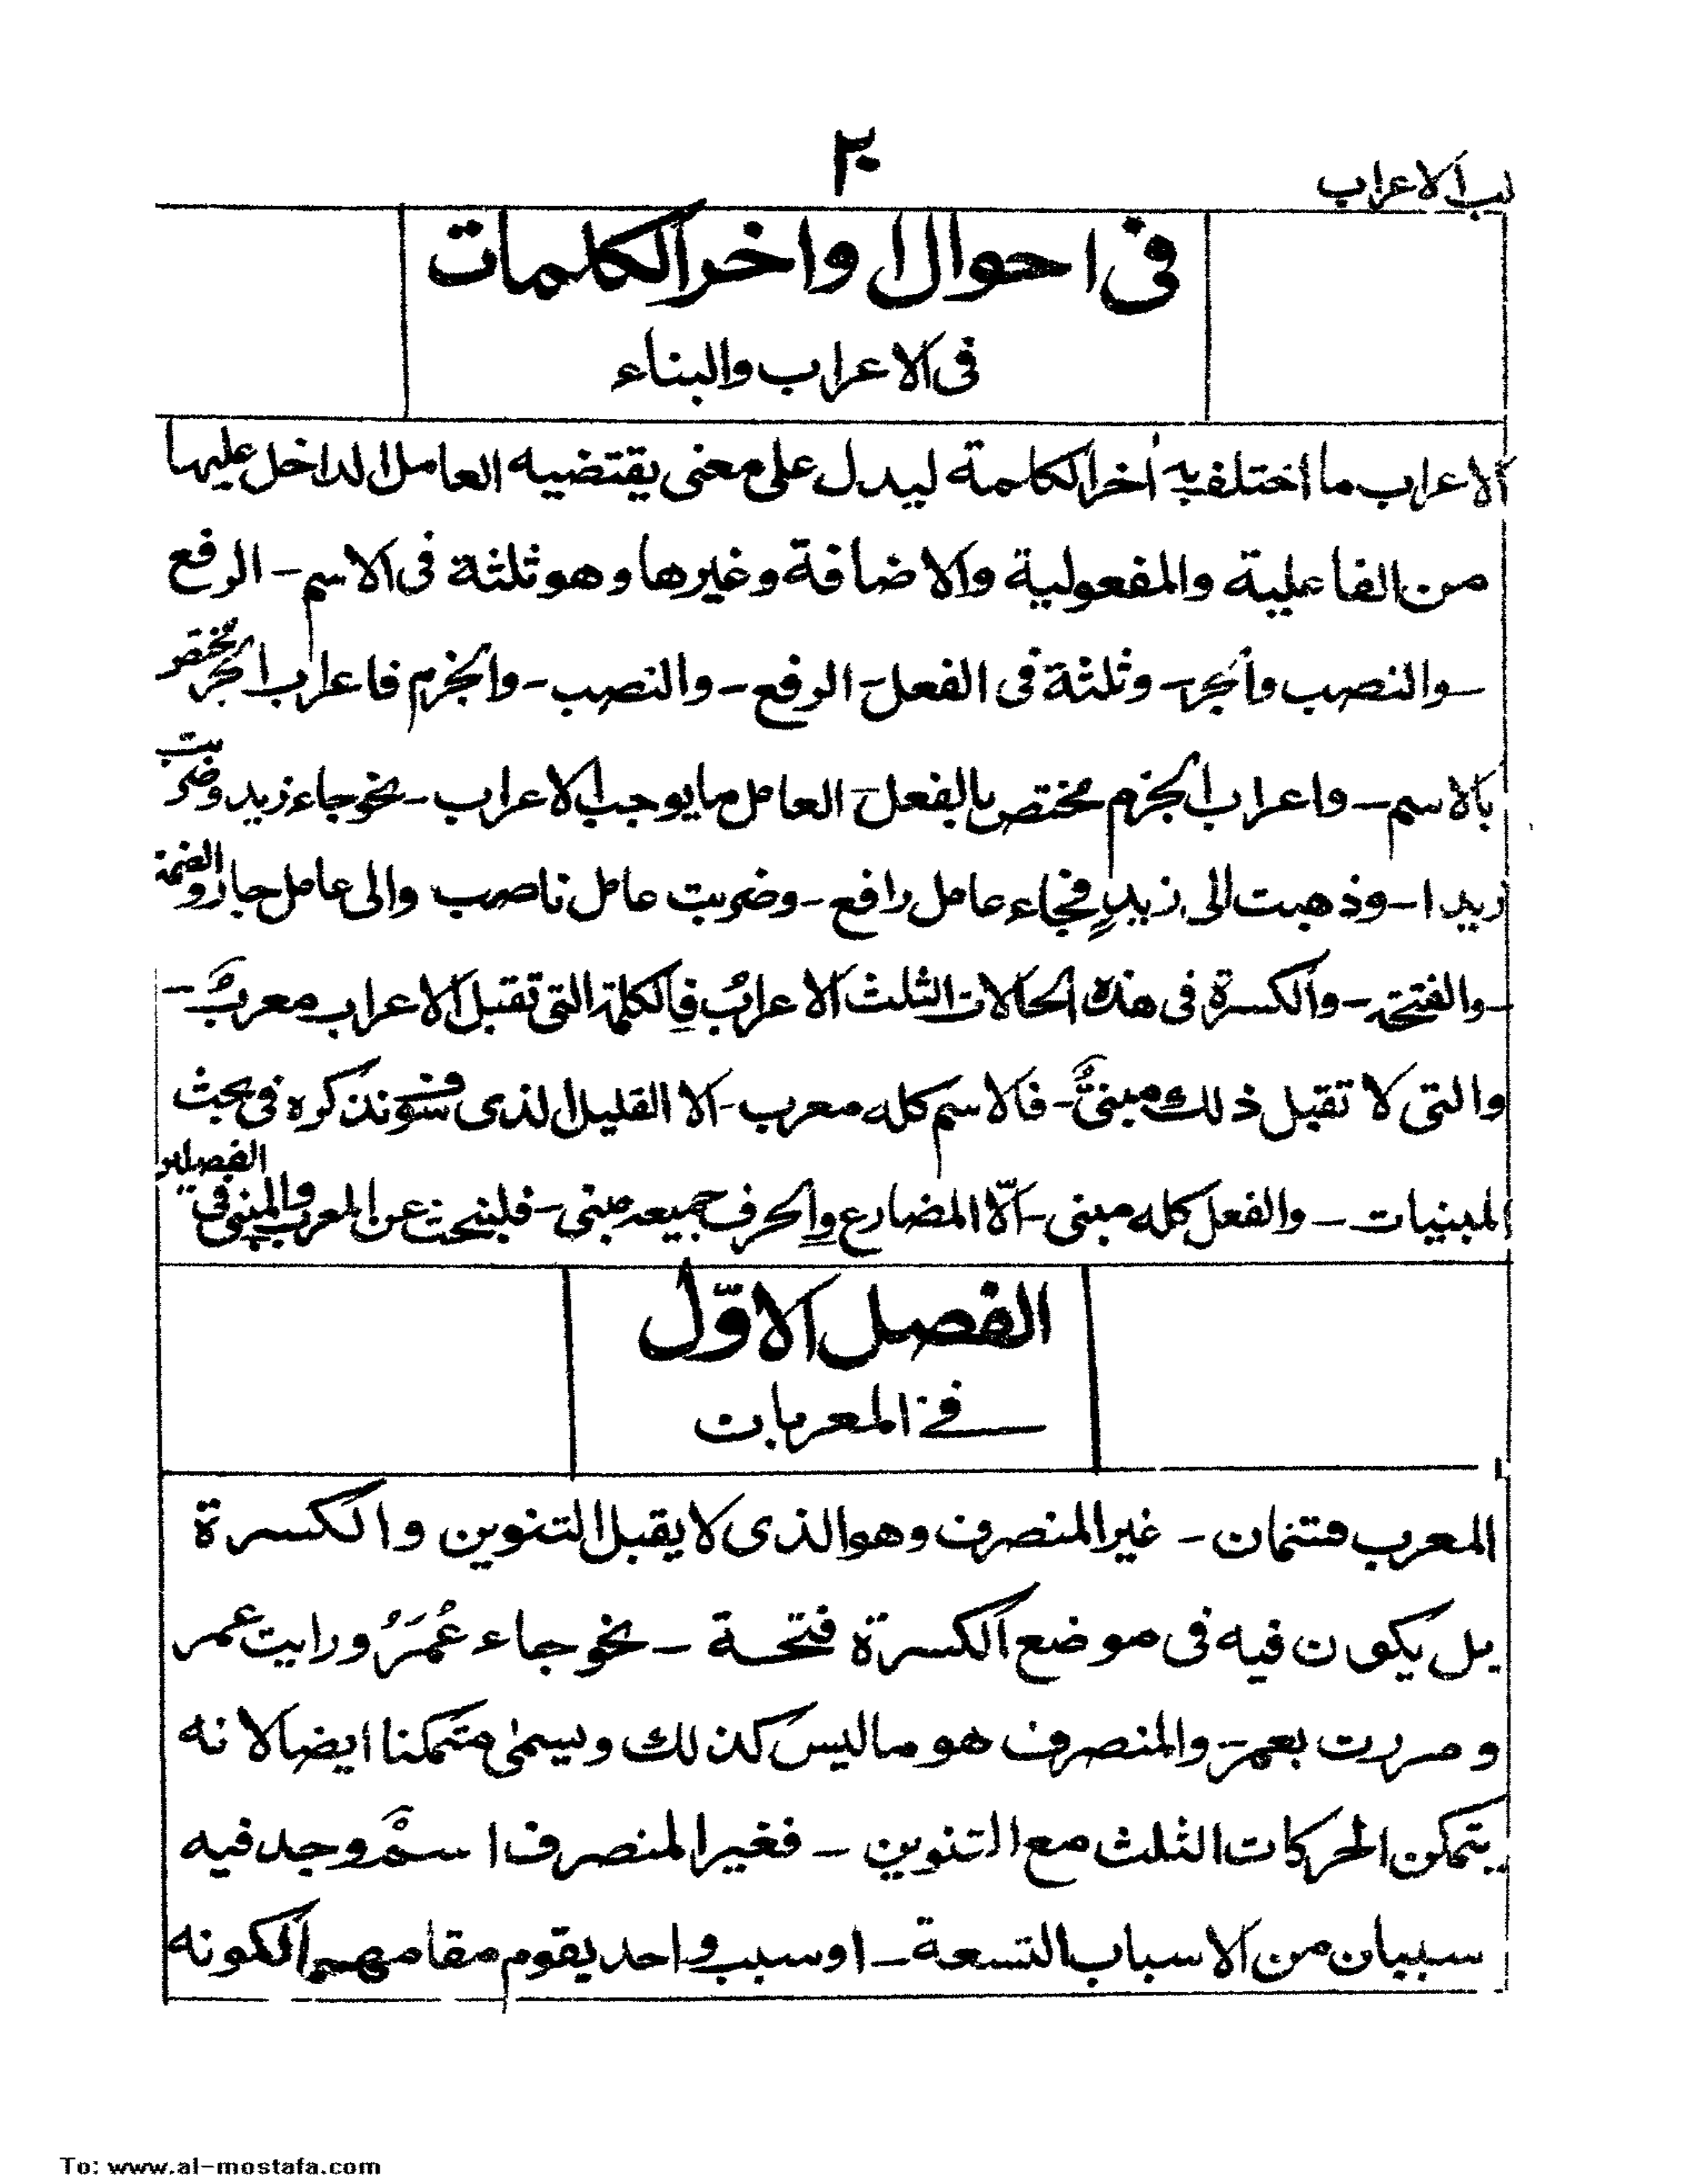 ٢٠
لب الاعراب
فى احوال اواخر الكلمات
فى الاعراب والبناء
الاعراب ما اختلف به أخر الكلمة ليدل على معنى يقتضيه العامل الداخل عليها
من الفاعلية والمفعولية والاضافة وغيرها وهو ثلثة فى الاسم - الرفع
- والنصب والجر - وثلثة فى الفعل - الرفع - والنصب - والجزم فاعراب الجر مختص
بالاسم - واعراب الجزم مختص بالفعل - العامل ما يوجب الاعراب - نحو جاء زيد وضربت
زيدا - وذهبت الى زيدٍ فجاء عامل رافع - وضربت عامل ناصب والى عامل جار والضمة
- والفتحة - والكسرة فى هذه الحالات الثلث الاعرابُ فالكلمة التى تقبل الاعراب معربٌ -
والتى لا تقبل ذلك مبنىٌّ - فالاسم كله معرب - الا القليل الذى فسوف نذكره فى بحث
المبنيات - والفعل كله مبنى - الّا المضارع والحرف جميعه مبنى - فلنبحث عن المعرب والمبنى فى الفصلين
الفصل الاوّل
فى المعربات
المعرب قسمان - غير المنصرف وهو الذى لا يقبل التنوين والكسرة
بل يكون فيه فى موضع الكسرة فتحة - نحو جاء عُمَرُ ورايت عمر
ومررت بعمرَ - والمنصرف هو ما ليس كذلك ويسمى متمكنا ايضا لانه
يتمكن الحركات الثلث مع التنوين - فغير المنصرف اسمٌ وجد فيه
سببان من الاسباب التسعة - او سبب واحد يقوم مقامهما لكونه
To: www.al-mostafa.com